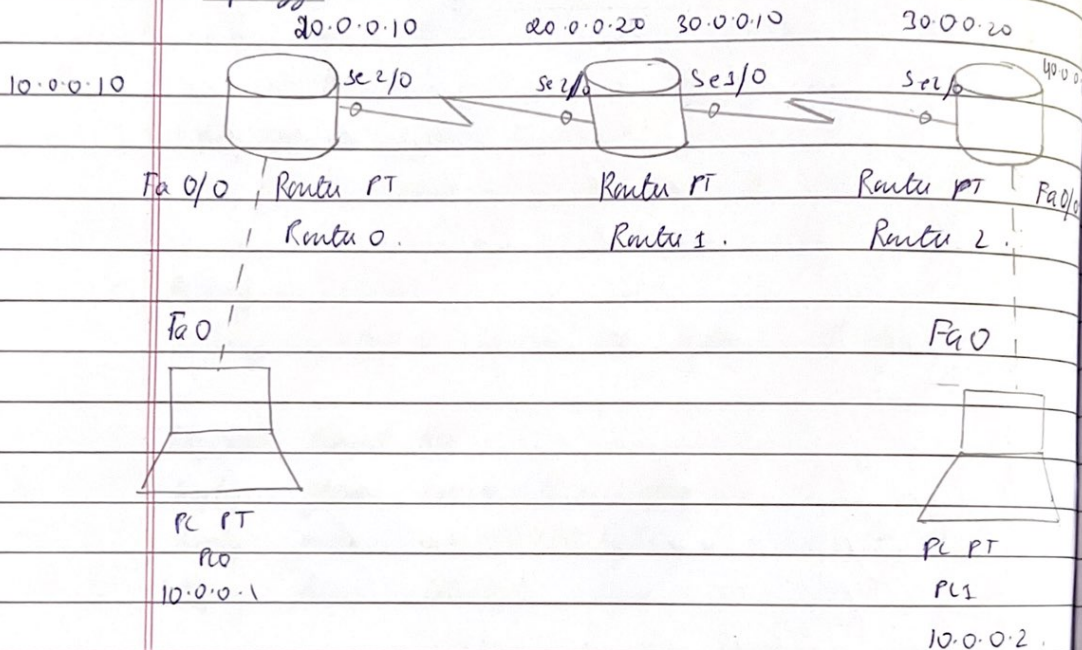 20.0.0.10 20.0.0.20 30.0.0.10 30.0.0.20
10.0.0.10 Se 2/0 Se 2/0 Se3/0 Se2/0 40.0.0
Fa 0/0 Router PT Router PT Router PT Fa0/0
Router 0. Router 1. Router 2.
Fa 0 Fa 0
PC PT PC PT
PC0 PC1
10.0.0.1 10.0.0.2.